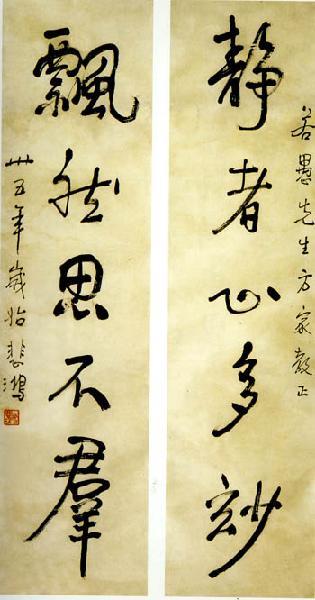 若愚先生方家教正
静者心多妙
飄然思不羣
卅五年歲始悲鴻